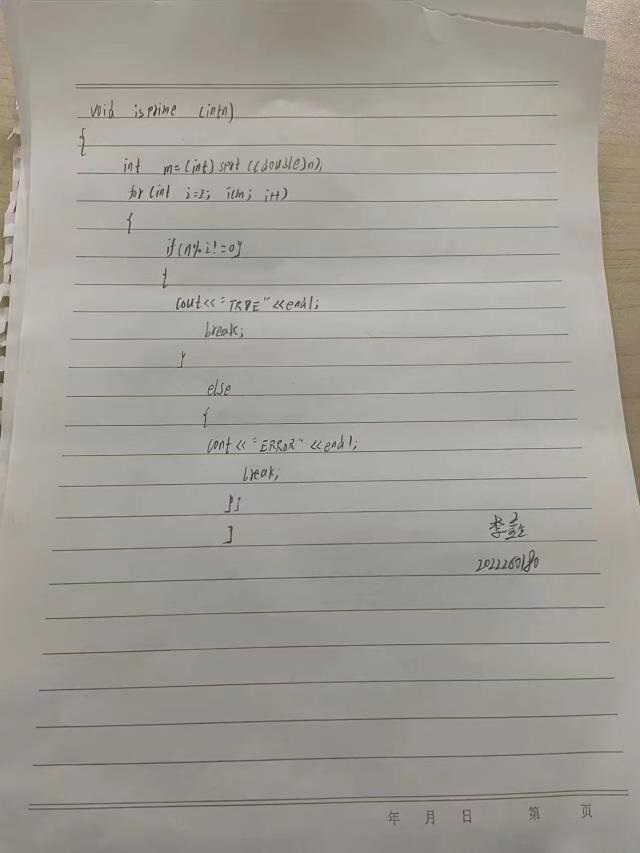 void isprime (int n)
{
int m=(int) sprt ((double)n);
for (int i=2; i<m; i++)
{
if(n%i!=0)
{
cout<<"TRUE"<<endl;
break;
}
else
{
cout<<"ERROR"<<endl;
break;
};
}
李
2022280180
年 月 日 第 页